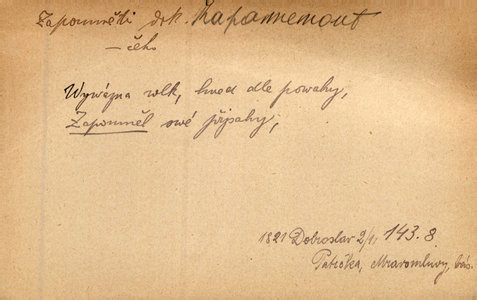 Zapomněti drk. Zapomenout
– čeho
Wywázna wlk, hned dle powahy,
Zapomněl swé přjsahy;
1821 Dobroslav 2/II 143.8
Patrčka, Mrawomluwy, bás.